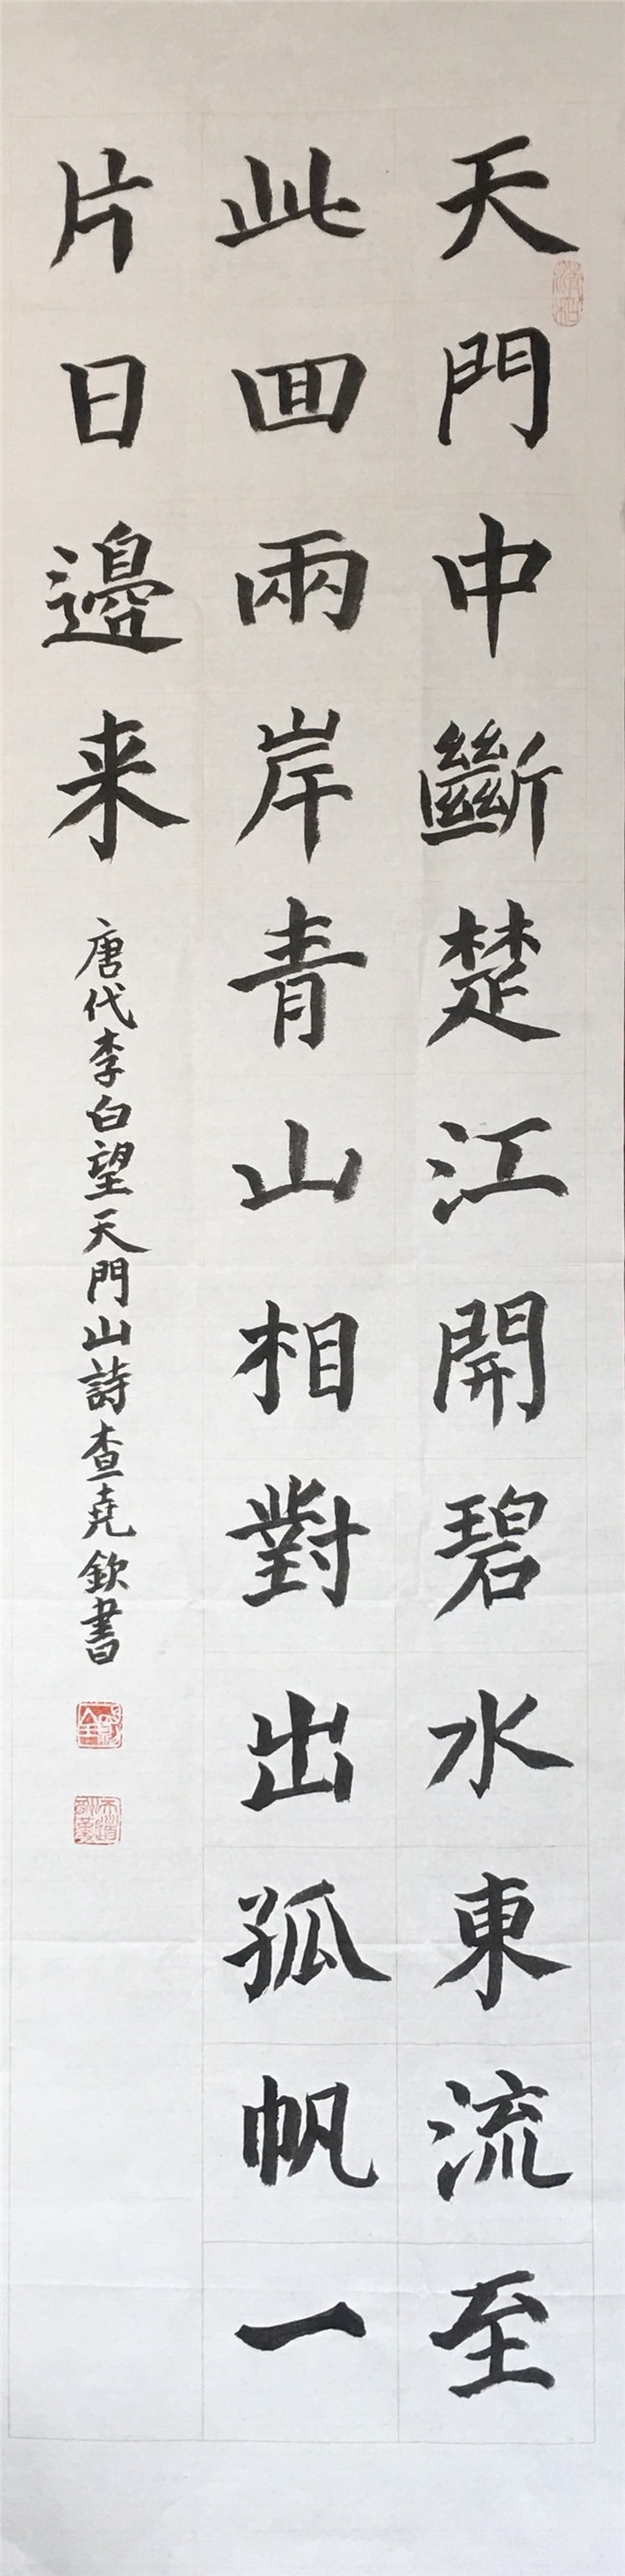 天門中斷楚江開碧水東流至
此回兩岸青山相對出孤帆一
片日邊来
唐代李白望天門山詩查堯欽書